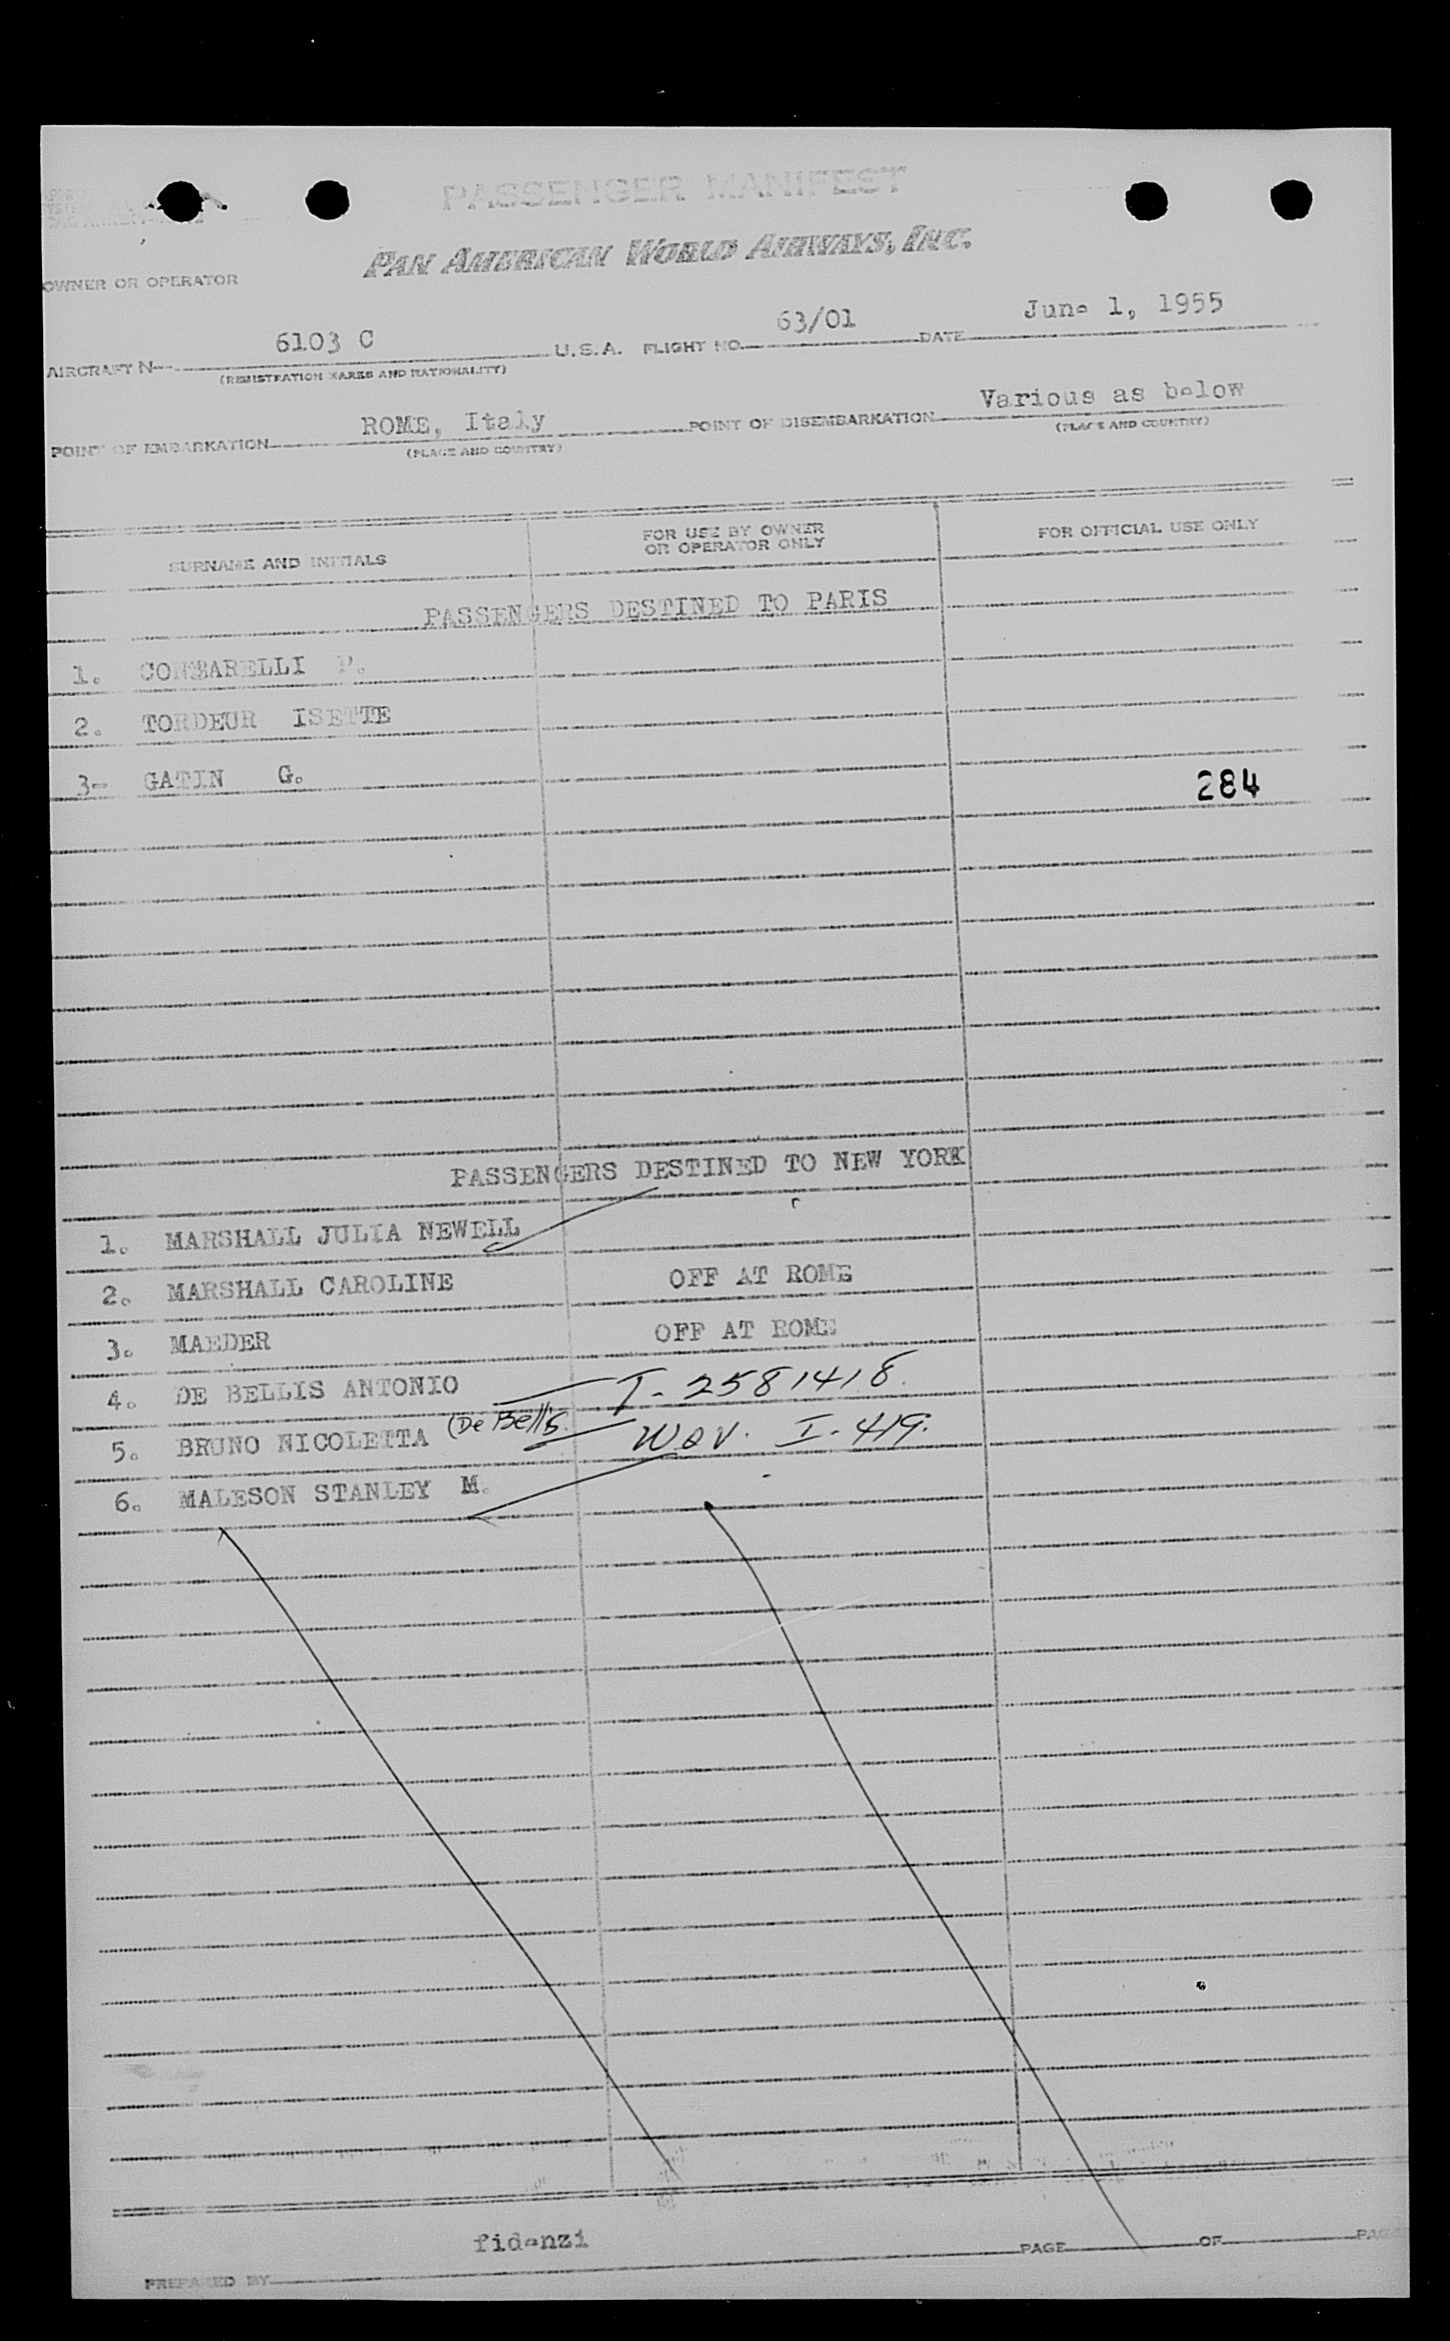 PASSENGER MANIFEST
PAN AMERICAN WORLD AIRWAYS, INC.
OWNER OR OPERATOR
AIRCRAFT N 6103 C U.S.A. FLIGHT NO. 63/01 DATE June 1, 1955
(REGISTRATION MARKS AND NATIONALITY)
POINT OF EMBARKATION ROME, Italy POINT OF DISEMBARKATION Various as below
(PLACE AND COUNTRY) (PLACE AND COUNTRY)
SURNAME AND INITIALS FOR USE BY OWNER OR OPERATOR ONLY FOR OFFICIAL USE ONLY
PASSENGERS DESTINED TO PARIS
1. P.
2. TORDEUR ISETTE
3- GATIN G.
284
PASSENGERS DESTINED TO NEW YORK
1. MARSHALL JULIA NEWELL
2. MARSHALL CAROLINE OFF AT ROME
3. MAEDER OFF AT ROME
4. DE BELLIS ANTONIO I-2581418.
5. BRUNO NICOLETTA (De Bellis. Wav. I-419.
6. MALESON STANLEY M.
fidenzi
PREPARED BY PAGE OF PAG